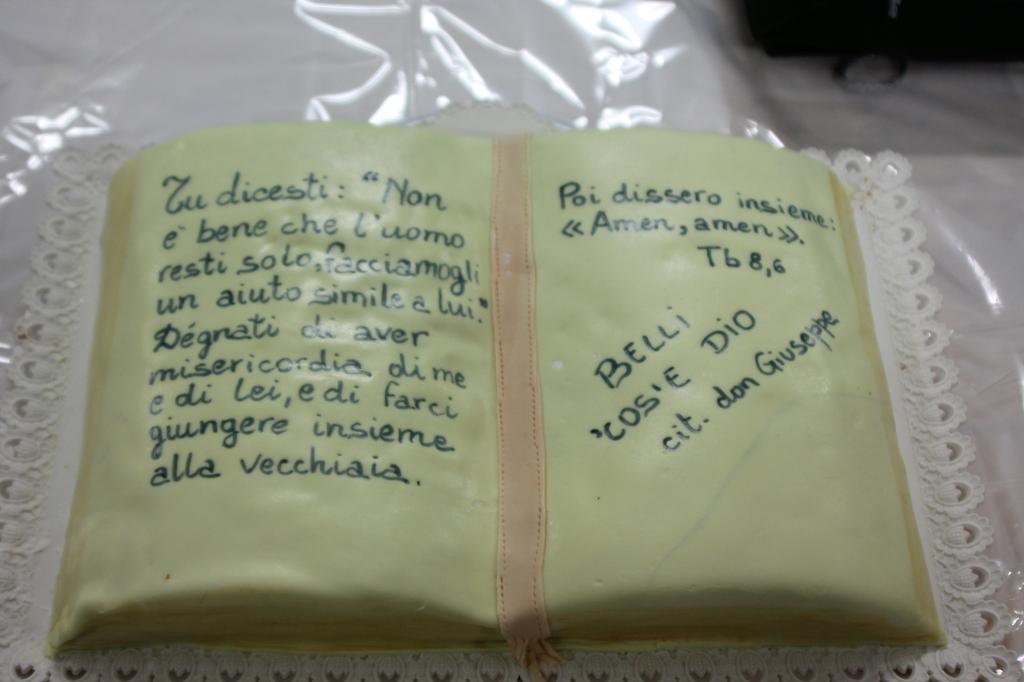 Tu dicesti: "Non
e' bene che l'uomo
resti solo, facciamogli
un aiuto simile a lui."
Dégnati di aver
misericordia di me
e di lei, e di farci
giungere insieme
alla vecchiaia.
Poi dissero insieme:
«Amen, amen».
Tb 8,6
BELLI
'COS'E DIO
cit. don Giuseppe